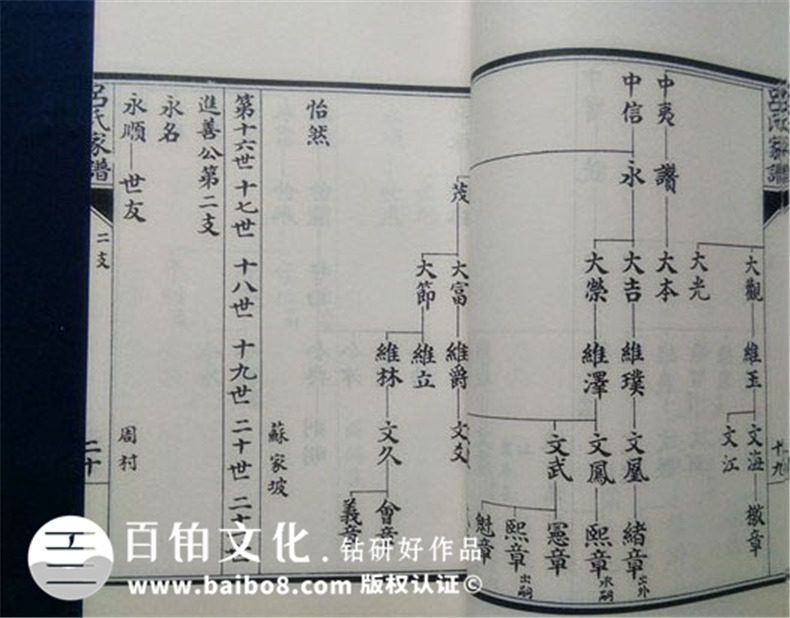 呂氏家譜
十九
大觀 維玉 文海 徽章
文江
大光
中夷 讚 大本
中信 永 大吉 維璞 文凰 緒章 出外
大榮 維澤 文鳳 熙章 承嗣
文武 憲章
熙章 出嗣
魁章
茂 大富 維爵 文
大節 維立
維林 文久 會章
義章
怡然
蘇家坡
第十六世 十七世 十八世 十九世 二十世 二十
進善公第二支
永名
永順 世友 周村
呂氏家譜
二支
二十
百铂文化.钻研好作品
www.baibo8.com 版权认证©